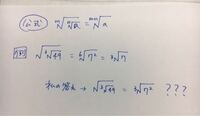 公式 ᵐ√ⁿ√a = ᵐⁿ√a
例 √³√49 = ⁶√7² = ³√7
私の答え → √³√49 = ³√7² ???